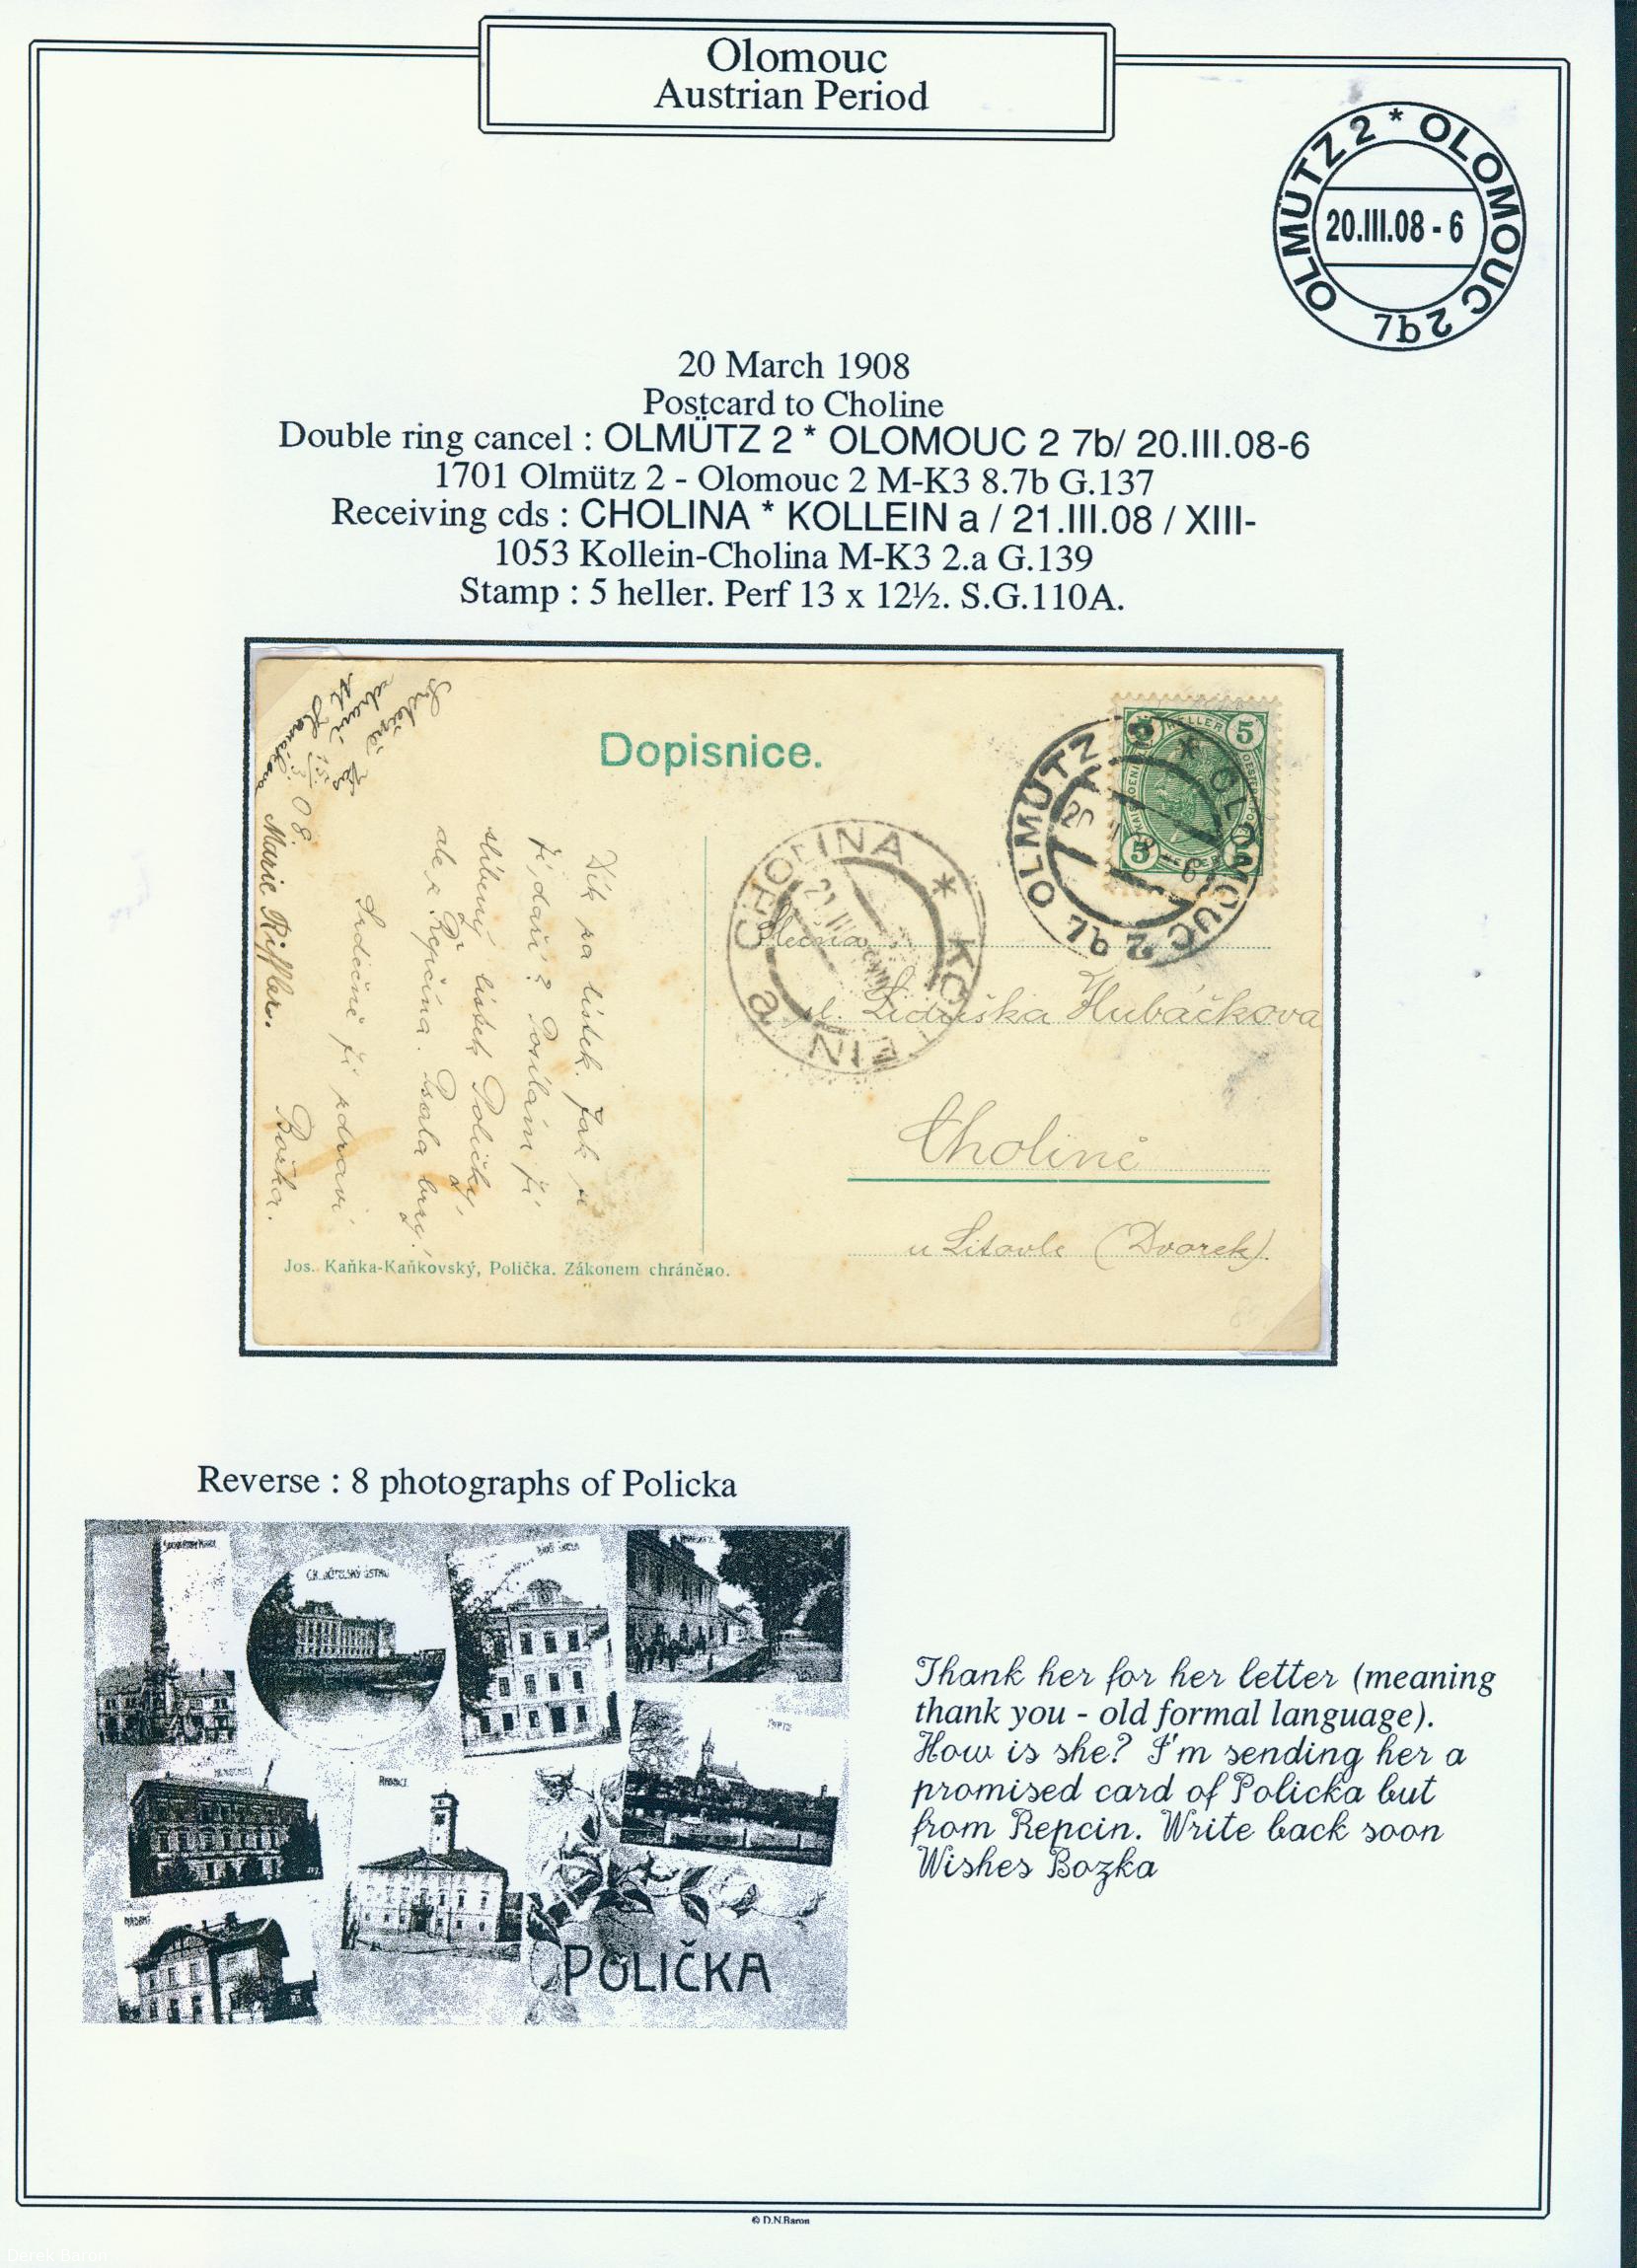 Olomouc
Austrian Period
OLMÜTZ 2 * OLOMOUC 2 7b
20.III.08 - 6
20 March 1908
Postcard to Choline
Double ring cancel : OLMÜTZ 2 * OLOMOUC 2 7b/ 20.III.08-6
1701 Olmütz 2 - Olomouc 2 M-K3 8.7b G.137
Receiving cds : CHOLINA * KOLLEIN a / 21.III.08 / XIII-
1053 Kollein-Cholina M-K3 2.a G.139
Stamp : 5 heller. Perf 13 x 12½. S.G.110A.
Dopisnice.
5 HELLER 5
5 HELLER
OLMÜTZ 2 * OLOMOUC 2 7b
CHOLINA * KOLLEIN a
21 III
Slečna
sl. Liduška Hubáčkova
Cholině
u Litovle (Dvorek).
Dík za lístek. Jak se
jí daří? Posílám jí
slíbený lístek Poličky,
ale z Řepčína. Psala brzy!
Srdečně jí zdraví
Božka.
Srdečně
zdraví Vás
Marie Riffler.
Jos. Kaňka-Kaňkovský, Polička. Zákonem chráněno.
Reverse : 8 photographs of Policka
C.K. UČITELSKÝ ÚSTAV
RADNICE
NÁDRAŽÍ
POLIČKA
Thank her for her letter (meaning
thank you - old formal language).
How is she? I'm sending her a
promised card of Policka but
from Repcin. Write back soon
Wishes Bozka
© D.N.Baron
Derek Baron